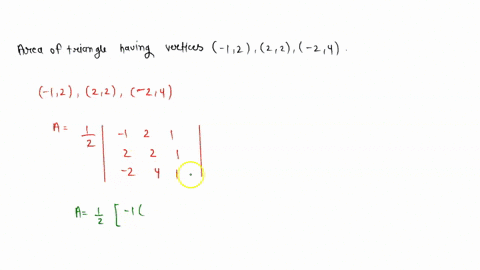 Area of triangle having vertices (-1,2), (2,2), (-2,4).
(-1,2), (2,2), (-2,4)
A= 1/2 | -1 2 1 |
2 2 1
-2 4 1
A= 1/2 [ -1(